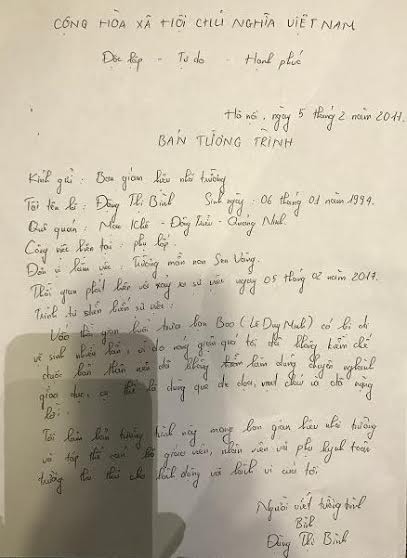 CỘNG HÒA XÃ HỘI CHỦ NGHĨA VIỆT NAM
Độc lập - Tự do - Hạnh phúc
Hà nội, ngày 5 tháng 2 năm 2017.
BẢN TƯỜNG TRÌNH
Kính gửi : Ban giám hiệu nhà trường
Tôi tên là : Đặng Thị Bình Sinh ngày : 06 tháng 01 năm 1994.
Quê quán : Mạo Khê - Đông Triều - Quảng Ninh.
Công việc hiện tại : phụ lớp.
Đơn vị làm việc : Trường mầm non Sen Vàng.
Thời gian phát hiện và xảy ra sự việc ngày 05 tháng 02 năm 2017.
Trình tự diễn biến sự việc :
Vào thời gian buổi trưa bạn Bao (Lê Duy Minh) có bị đi
vệ sinh nhiều lần, vì do nóng giận quá tôi đã không kiềm chế
được bản thân nên đã không làm đúng chuyên ngành
giáo dục, cụ thể là dùng que đe dọa, và đã nặng
lời.
Tôi làm bản tường trình này mong ban giám hiệu nhà trường
và tập thể cán bộ giáo viên, nhân viên và phụ huynh toàn
trường tha thứ cho hành động và hành vi của tôi
Người viết tường trình
Bình
Đặng Thị Bình